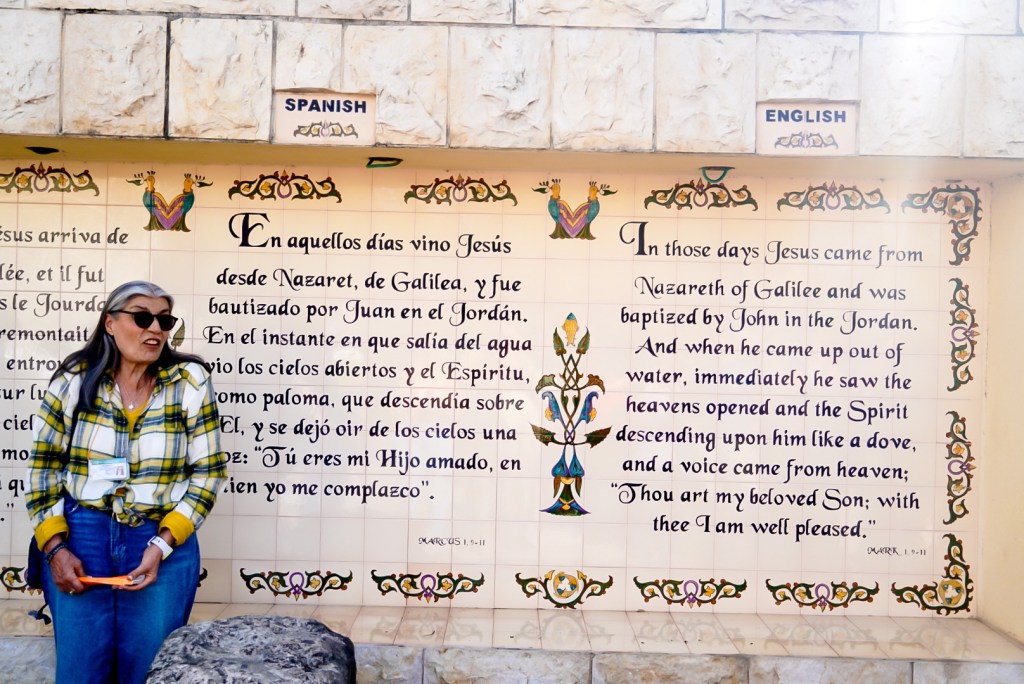 SPANISH
ENGLISH
ésus arriva de
lée, et il fut
s le Jourda
remontait
entro
sur lu
ciel
En aquellos días vino Jesús
desde Nazaret, de Galilea, y fue
bautizado por Juan en el Jordán.
En el instante en que salía del agua
vio los cielos abiertos y el Espíritu,
como paloma, que descendía sobre
El, y se dejó oir de los cielos una
oz: “Tú eres mi Hijo amado, en
uien yo me complazco”.
MARCUS 1, 9-11
In those days Jesus came from
Nazareth of Galilee and was
baptized by John in the Jordan.
And when he came up out of
water, immediately he saw the
heavens opened and the Spirit
descending upon him like a dove,
and a voice came from heaven;
“Thou art my beloved Son; with
thee I am well pleased.”
MARK 1, 9-11